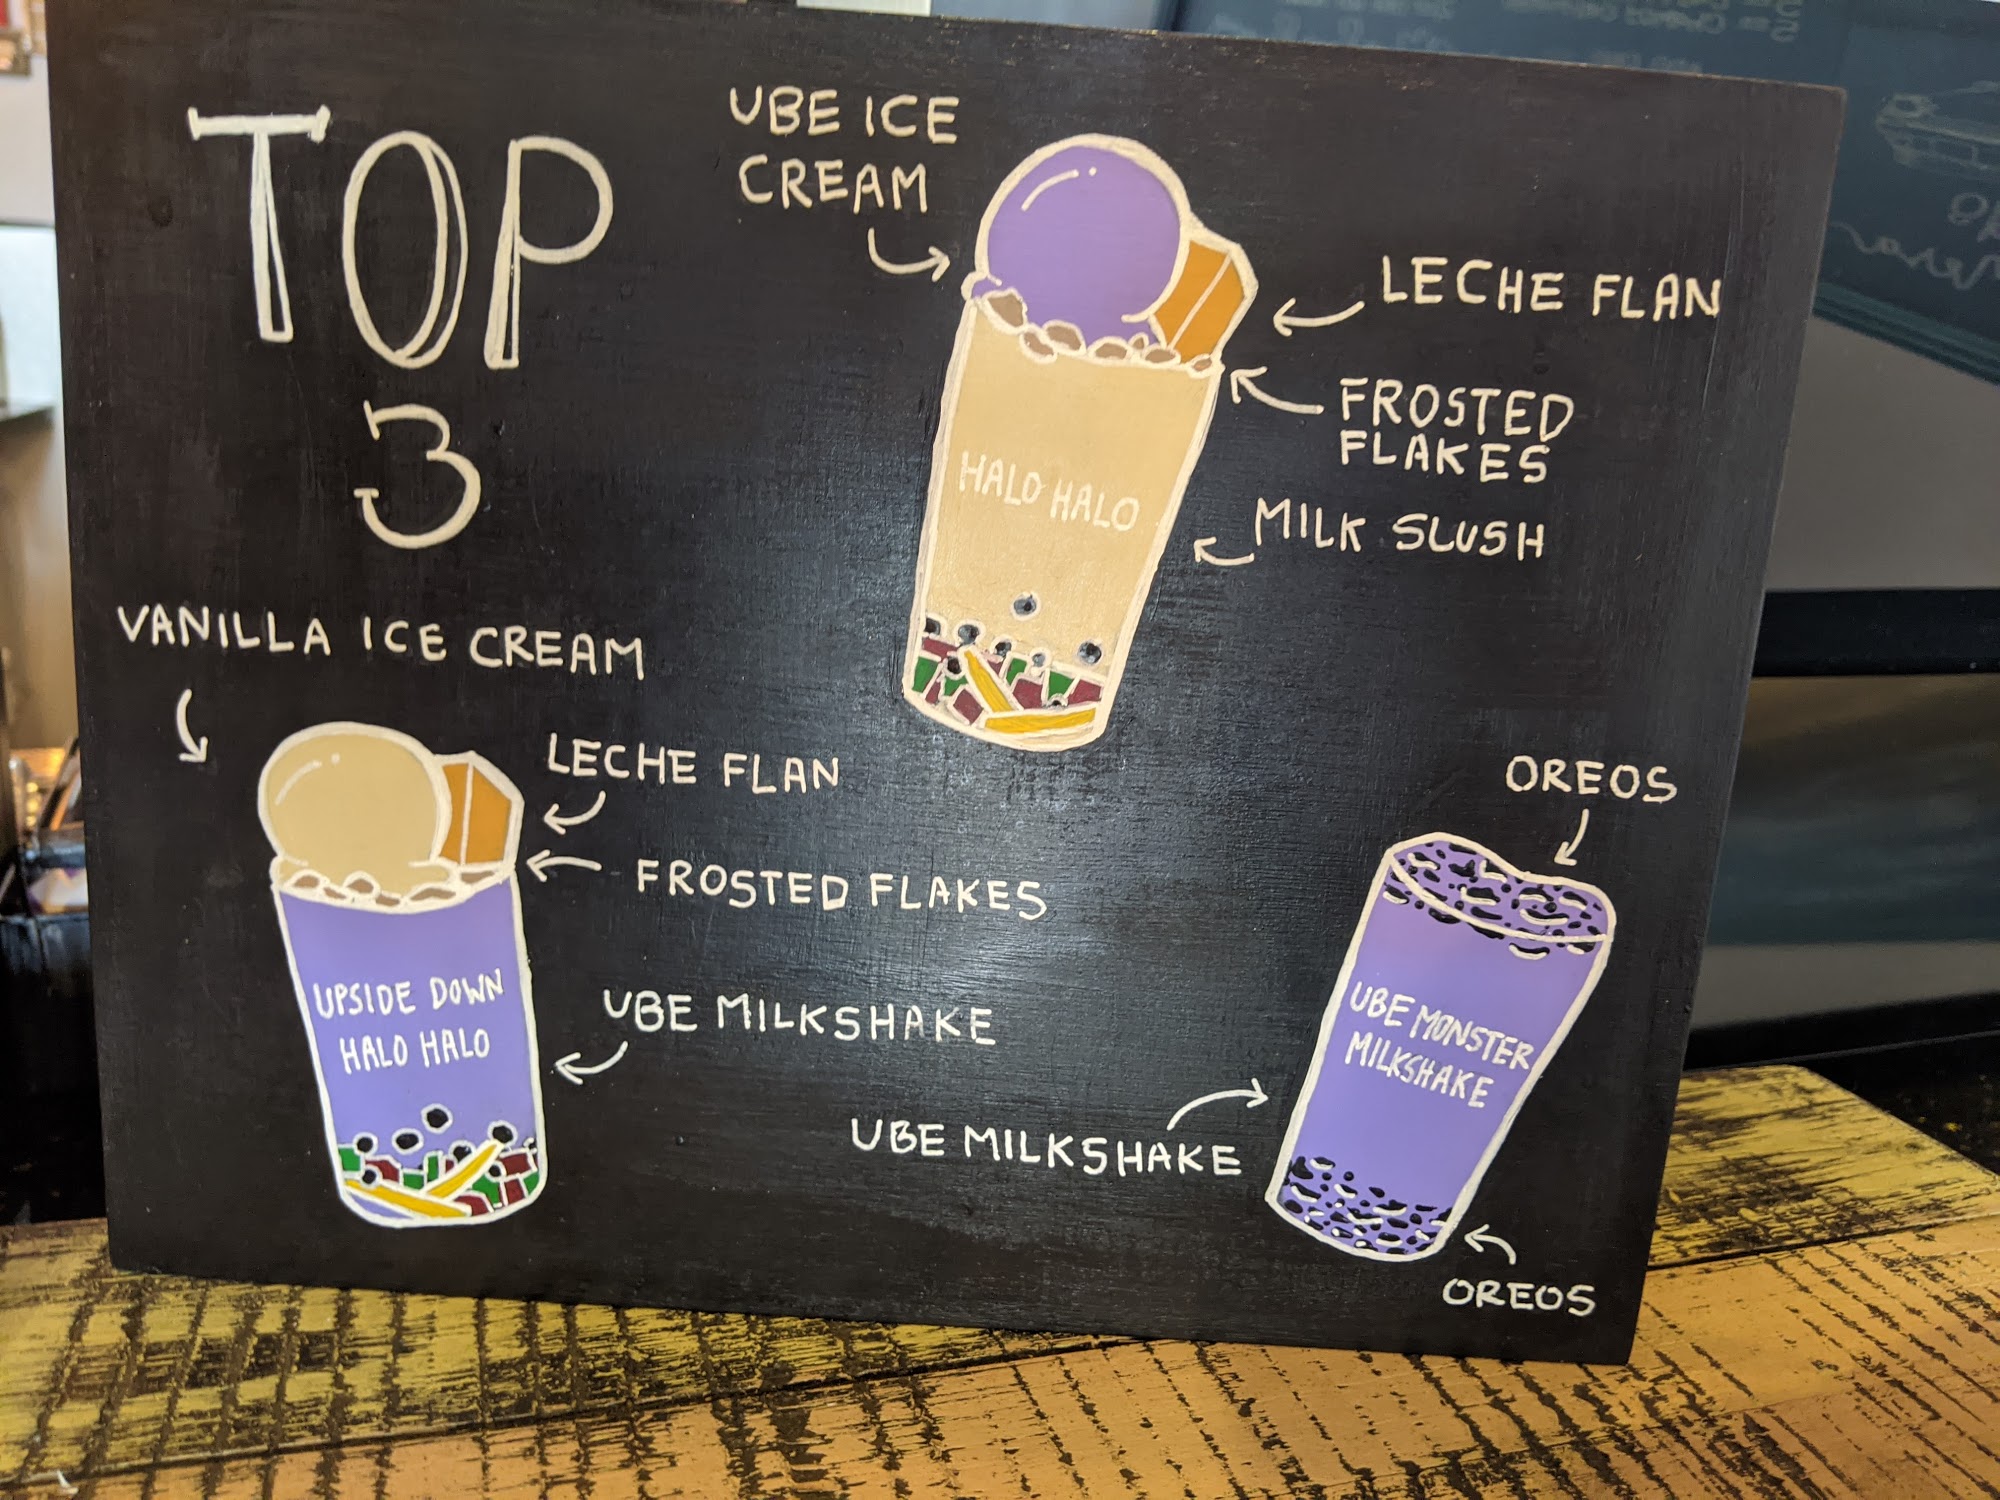 TOP
3
UBE ICE
CREAM
LECHE FLAN
FROSTED
FLAKES
HALO HALO
MILK SLUSH
VANILLA ICE CREAM
LECHE FLAN
FROSTED FLAKES
UPSIDE DOWN
HALO HALO
UBE MILKSHAKE
OREOS
UBE MONSTER
MILKSHAKE
UBE MILKSHAKE
OREOS